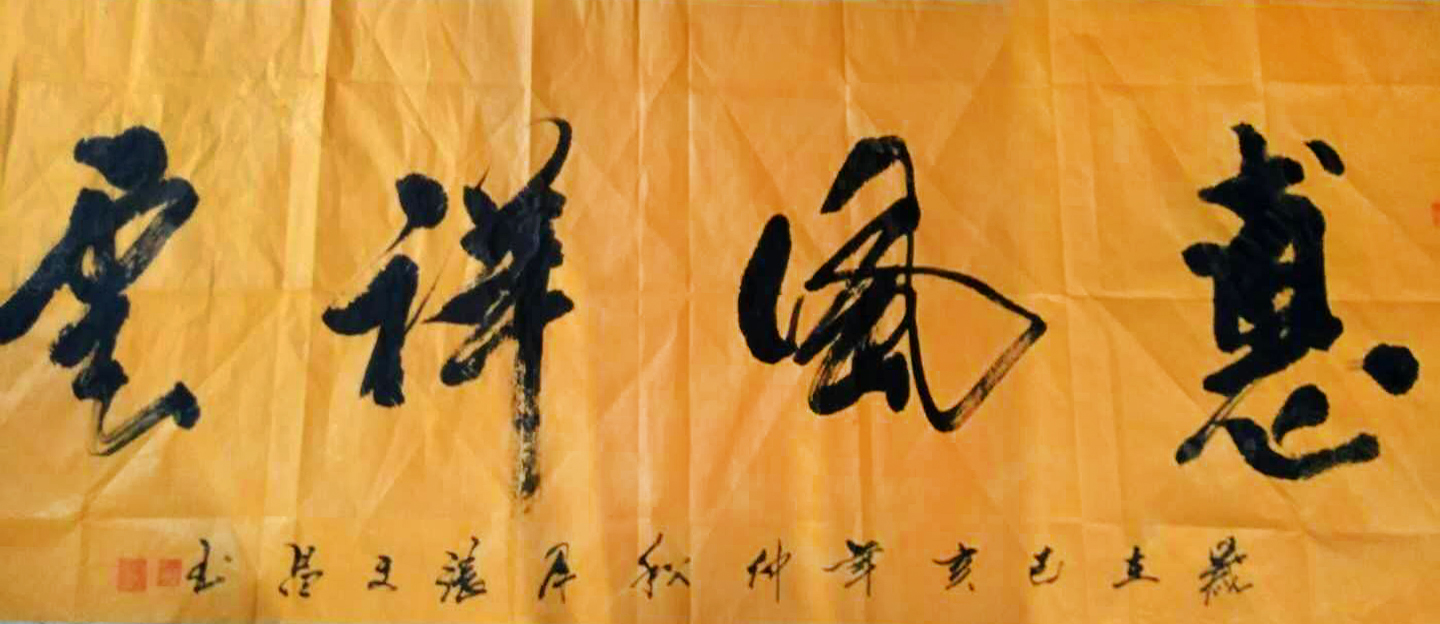 惠風祥雲
歲在己亥年仲秋月張文昌书